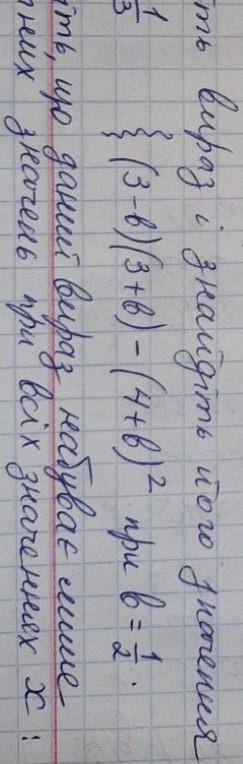 вираз і знайдіть його значення
1/3
(3-b)(3+b) - (4+b)² при b = 1/2.
що даний вираз набуває лише
значень при всіх значеннях x: